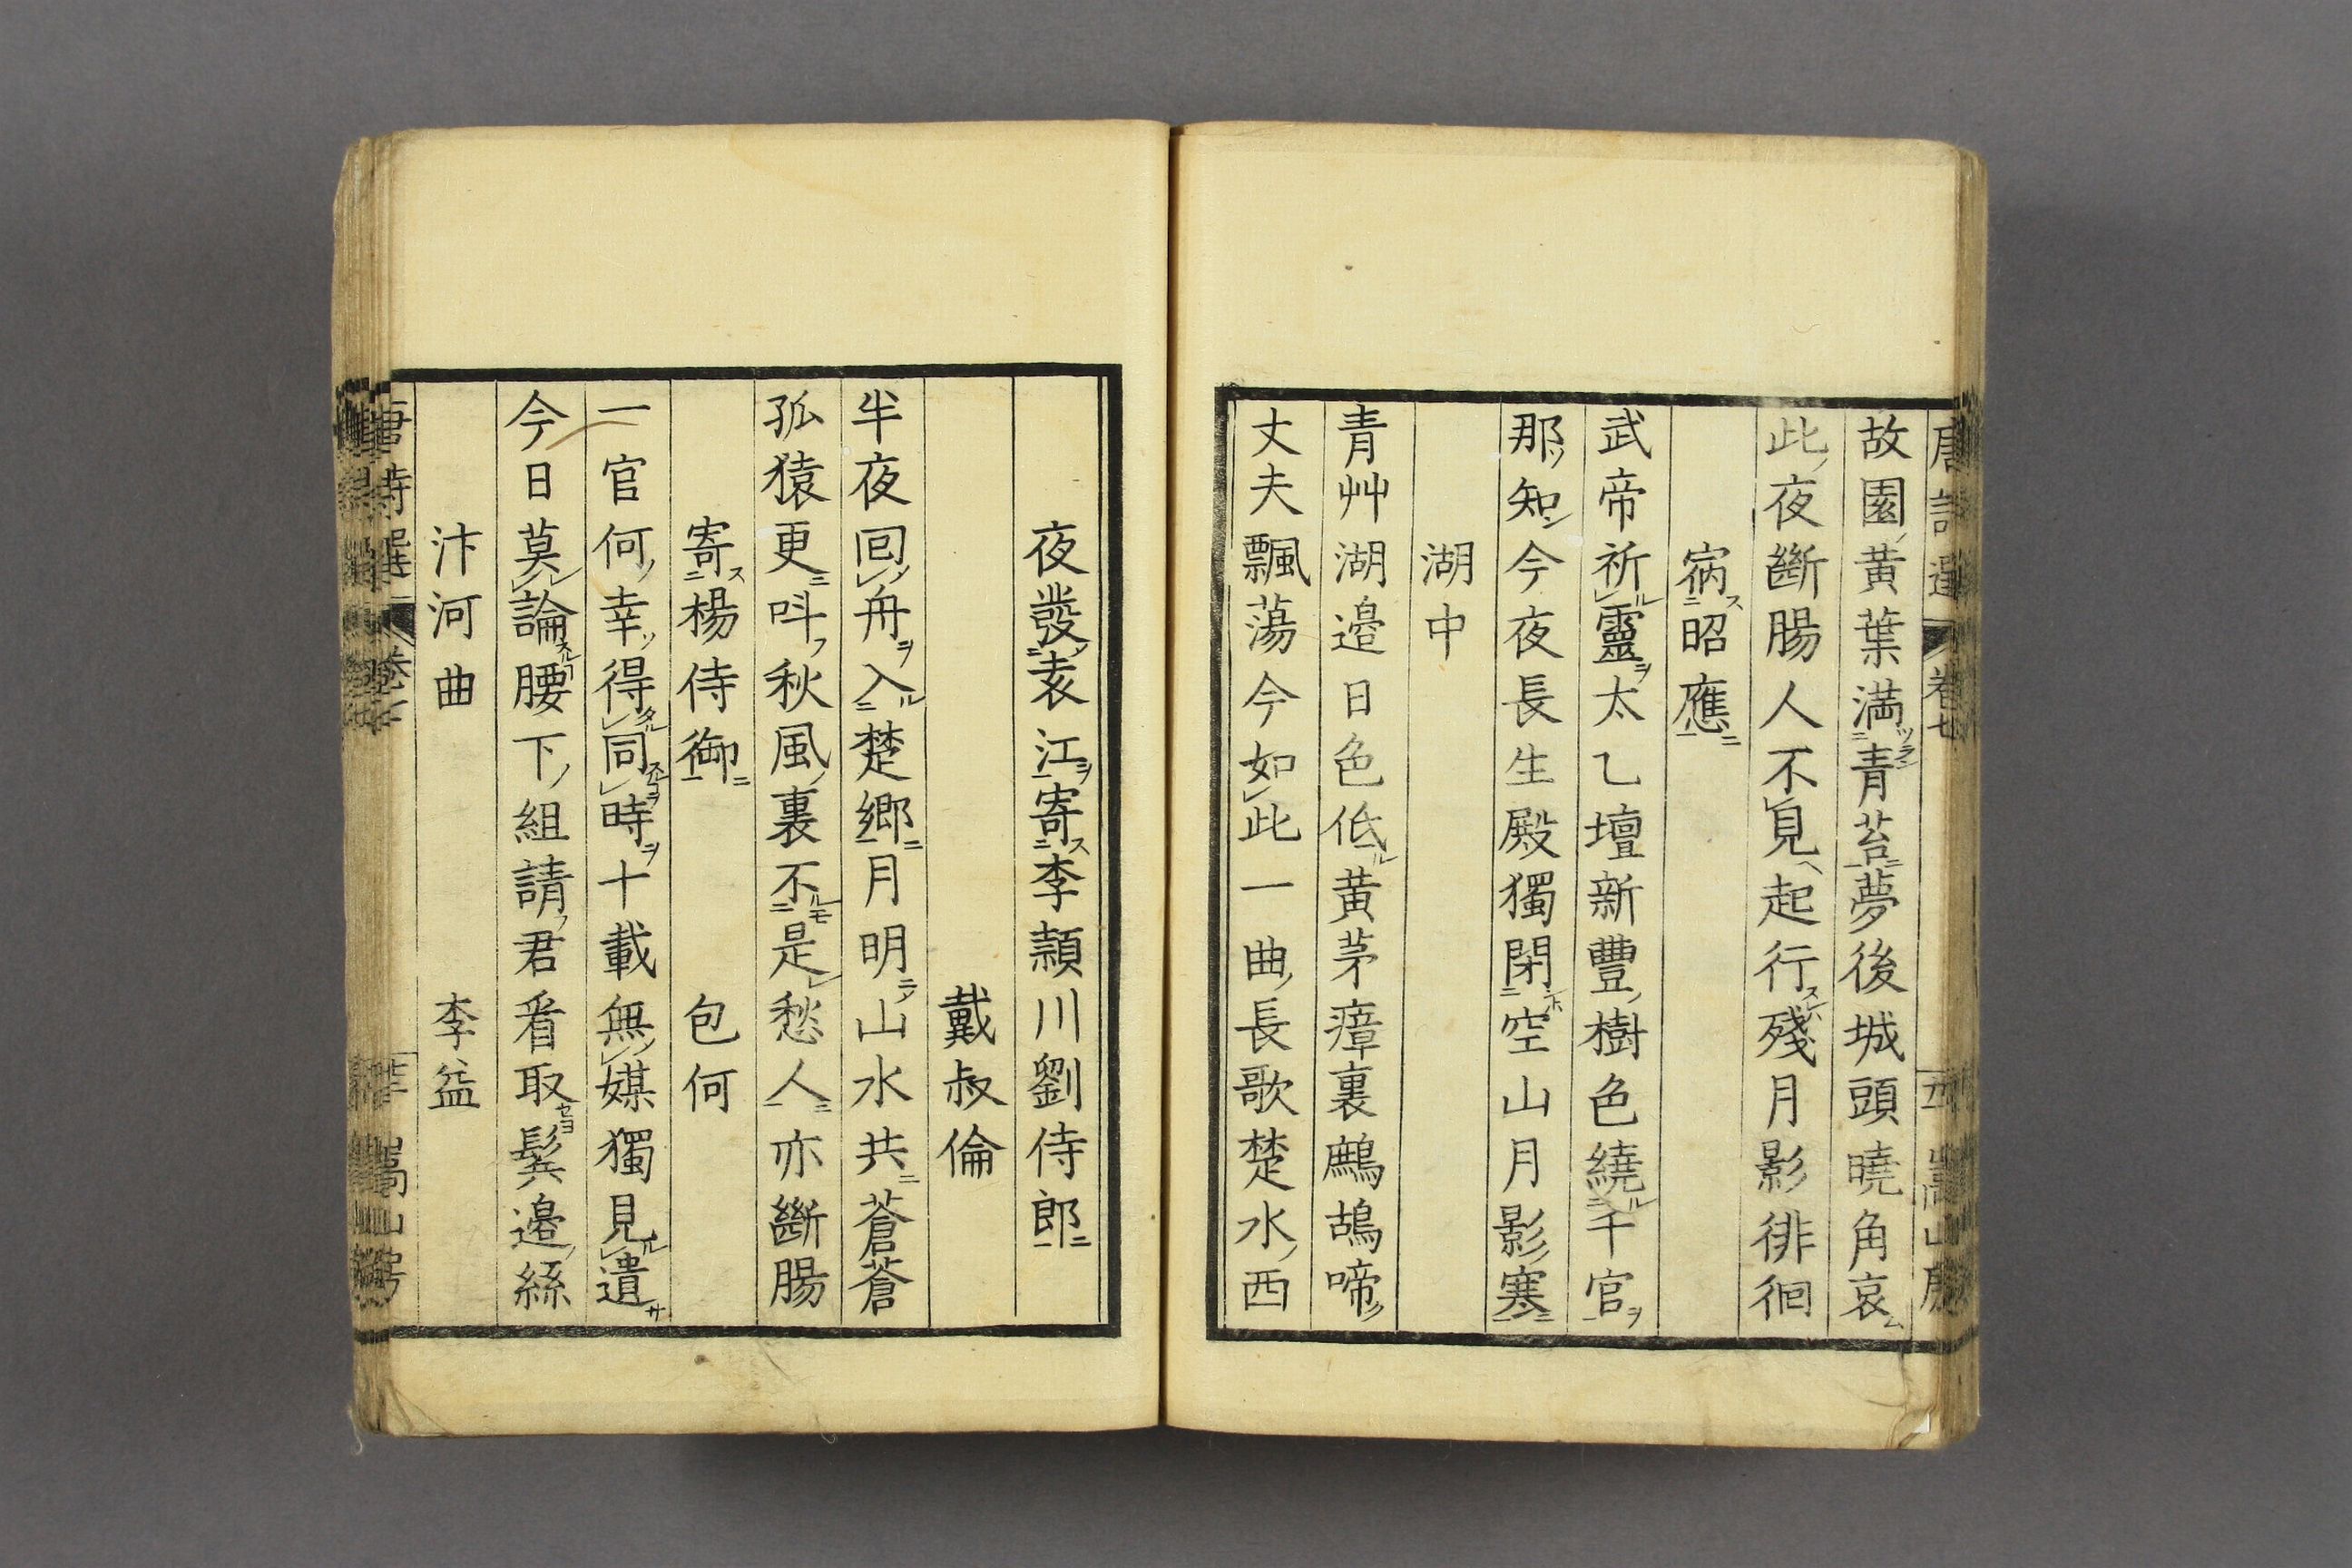 唐詩選 卷七 嵩山房
故園黃葉滿青苔夢後城頭曉角哀
此夜斷腸人不見起行殘月影徘徊
宿昭應
武帝祈靈太乙壇新豐樹色繞千官
那知今夜長生殿獨閉空山月影寒
湖中
青艸湖邉日色低黃茅瘴裏鷓鴣啼
丈夫飄蕩今如此一曲長歌楚水西
夜發袁江寄李潁川劉侍郎
戴叔倫
半夜回舟入楚鄉月明山水共蒼蒼
孤猿更呌秋風裏不是愁人亦斷腸
寄楊侍御 包何
一官何幸得同時十載無媒獨見遺
今日莫論腰下組請君看取鬂邉絲
汴河曲 李益
唐詩選 嵩山房